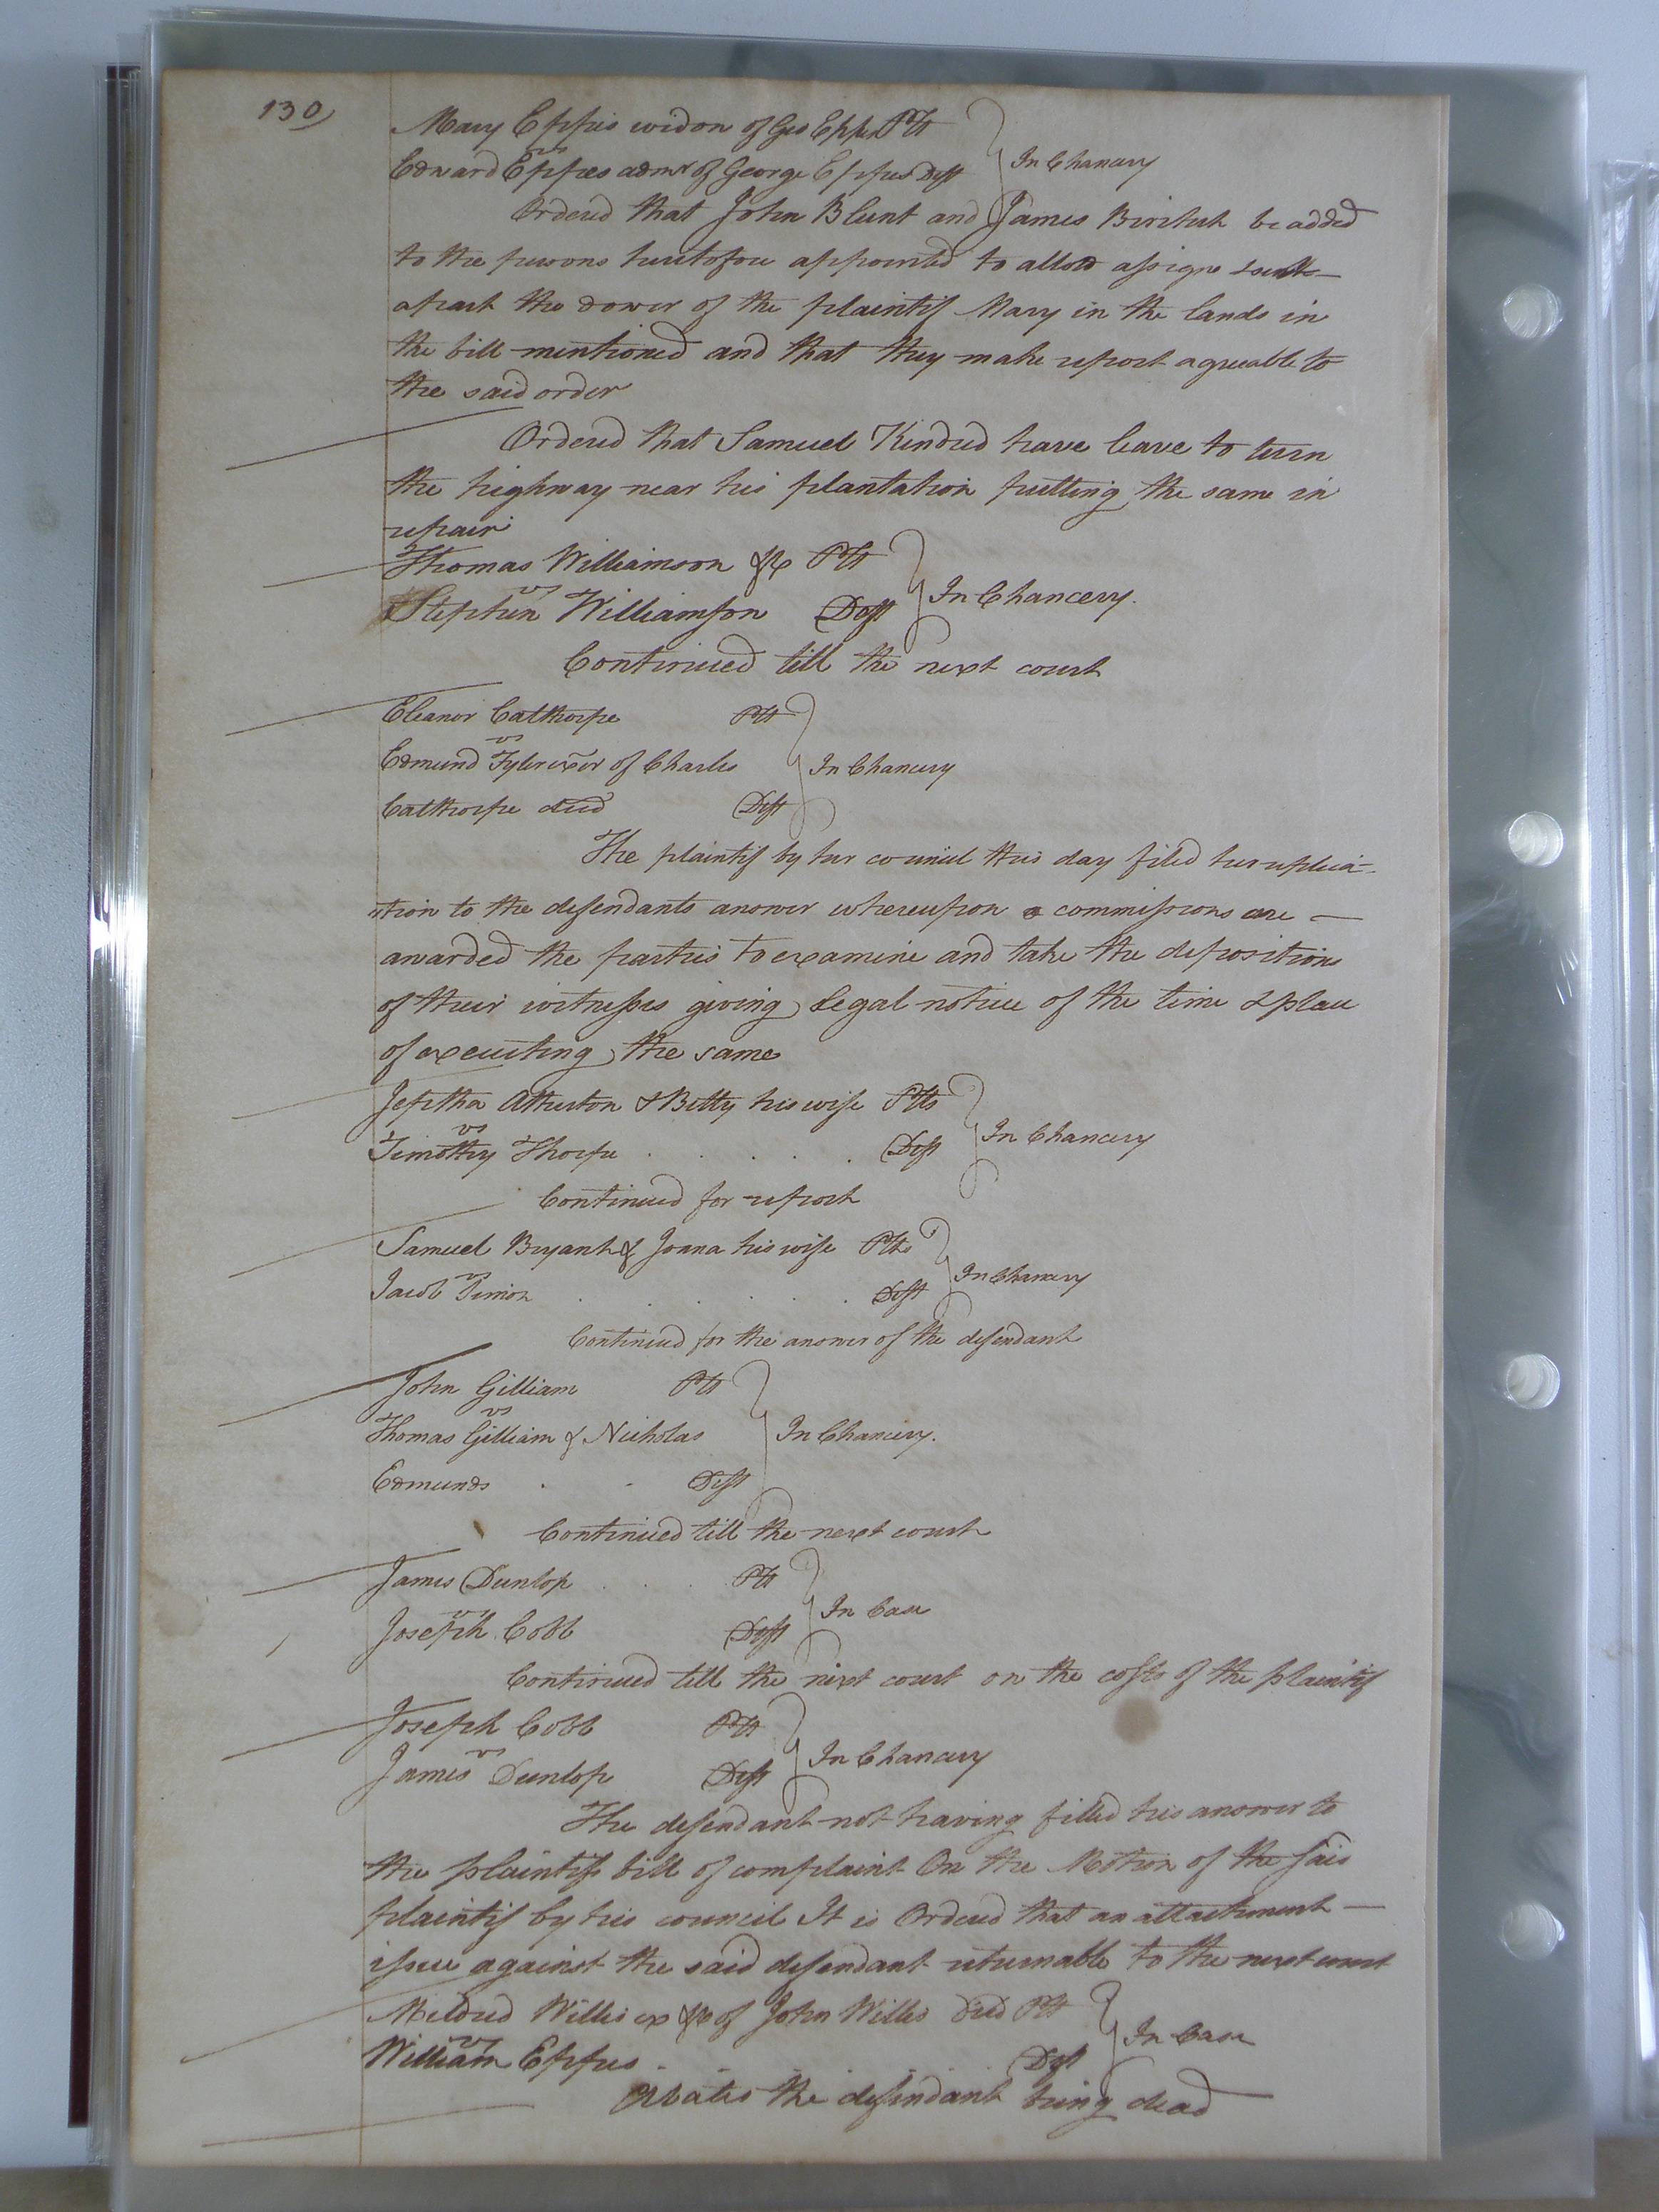 130
Mary Eppes widow of Geo Eppes Plt
vs
Edward Eppes admr of George Eppes Deft
In Chancery
Ordered that John Blunt and James be added
to the persons heretofore appointed to allott assigne & sett
apart the dower of the plaintif Mary in the lands in
the bill mentioned and that they make report agreeable to
the said order
Ordered that Samuel Kindred have leave to turn
the highway near his plantation putting the same in
repair
Thomas Williamson &c Plt
vs
Stephen Williamson Deft
In Chancery.
Continued till the next court
Eleanor Calthorpe Plt
vs
Edmund Tyler exor of Charles
Calthorpe decd Deft
In Chancery
The plaintif by her council this day filed her replica-
tion to the defendants answer whereupon commissions are
awarded the parties to examine and take the depositions
of their witnesses giving legal notice of the time & place
of executing the same
Jeptha Atherton & Betty his wife Plts
vs
Timothy Thorpe . . . . . Deft
In Chancery
Continued for report
Samuel Bryant & Joana his wife Plts
vs
Jacob Simon . . . . . Deft
In Chancery
Continued for the answer of the defendant
John Gilliam Plt
vs
Thomas Gilliam & Nicholas
Edmunds . . Deft
In Chancery.
Continued till the next court
James Dunlop . . . Plt
vs
Joseph Cobb Deft
In Case
Continued till the next court on the costs of the plaintif
Joseph Cobb Plt
vs
James Dunlop Deft
In Chancery
The defendant not having filled his answer to
the plaintifs bill of complaint On the Motion of the said
plaintif by his council It is Ordered that an attachment
issue against the said defendant returnable to the next court
Mildred Willis ex &c of John Willis decd Plt
vs
William Eppes . . . . . Deft
In Case
Abates the defendant being dead